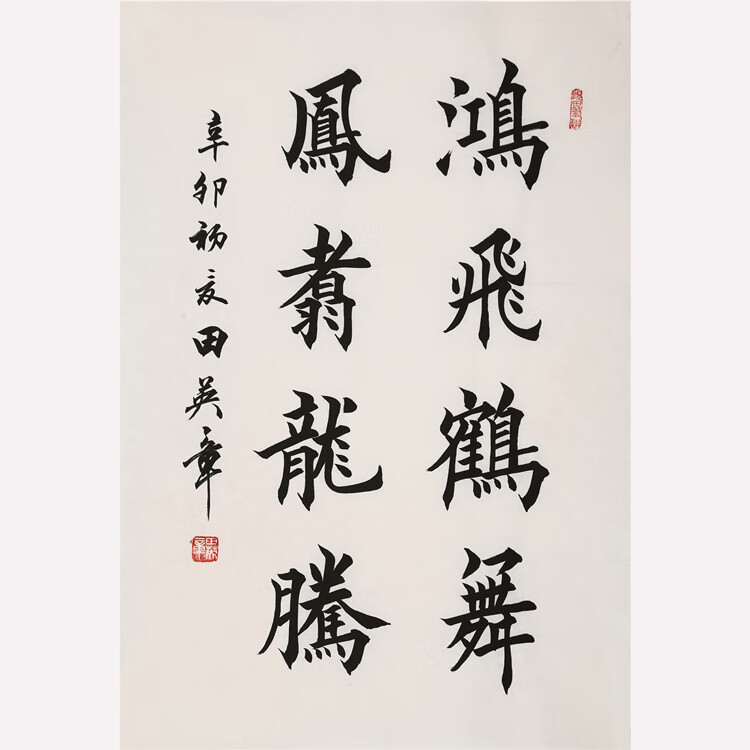 鴻飛鶴舞
鳳翥龍騰
辛卯初夏田英章